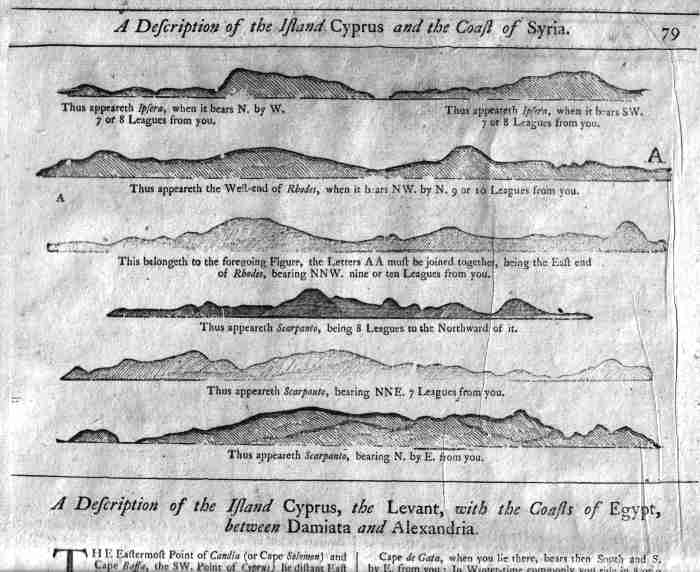 A Deſcription of the Iſland Cyprus and the Coaſt of Syria. 79
Thus appeareth Ipſera, when it bears N. by W.
7 or 8 Leagues from you.
Thus appeareth Ipſera, when it bears SW.
7 or 8 Leagues from you.
A
Thus appeareth the Weſt-end of Rhodes, when it bears NW. by N. 9 or 10 Leagues from you.
A
This belongeth to the foregoing Figure, the Letters A A muſt be joined together, being the Eaſt end
of Rhodes, bearing NNW. nine or ten Leagues from you.
Thus appeareth Scarpanto, being 8 Leagues to the Northward of it.
Thus appeareth Scarpanto, bearing NNE. 7 Leagues from you.
Thus appeareth Scarpanto, bearing N. by E. from you.
A Deſcription of the Iſland Cyprus, the Levant, with the Coaſts of Egypt,
between Damiata and Alexandria.
THE Eaſtermoſt Point of Candia (or Cape Salomon) and
Cape Baffa, the SW. Point of Cyprus) lie diſtant Eaſt
Cape de Gata, when you lie there, bears then South and S.
by E. from you: In Winter-time commonly you ride in 8 or 9